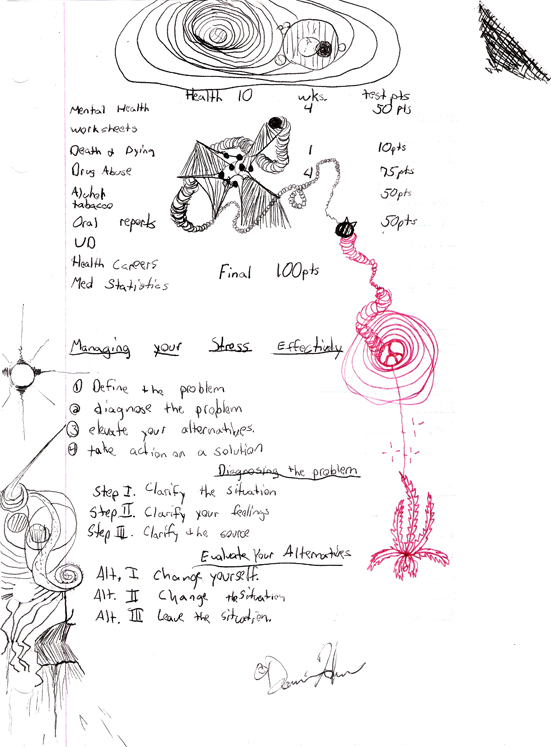 Health 10 wks. test pts
Mental Health 4 50 pts
worksheets
Death & Dying 1 10pts
Drug Abuse 4 75pts
Alchol 50pts
tabacco
Oral reports 50pts
VD
Health Careers
Med Statistics Final 100pts
Managing your Stress Effectively
① Define the problem
② diagnose the problem
③ elevate your alternatives.
④ take action on a solution
Diagnosing the problem
Step I. Clarify the situation
Step II. Clarify your feelings
Step III. Clarify the source
Evaluate Your Alternatives
Alt. I Change yourself.
Alt. II Change the situation
Alt. III Leave the situation.